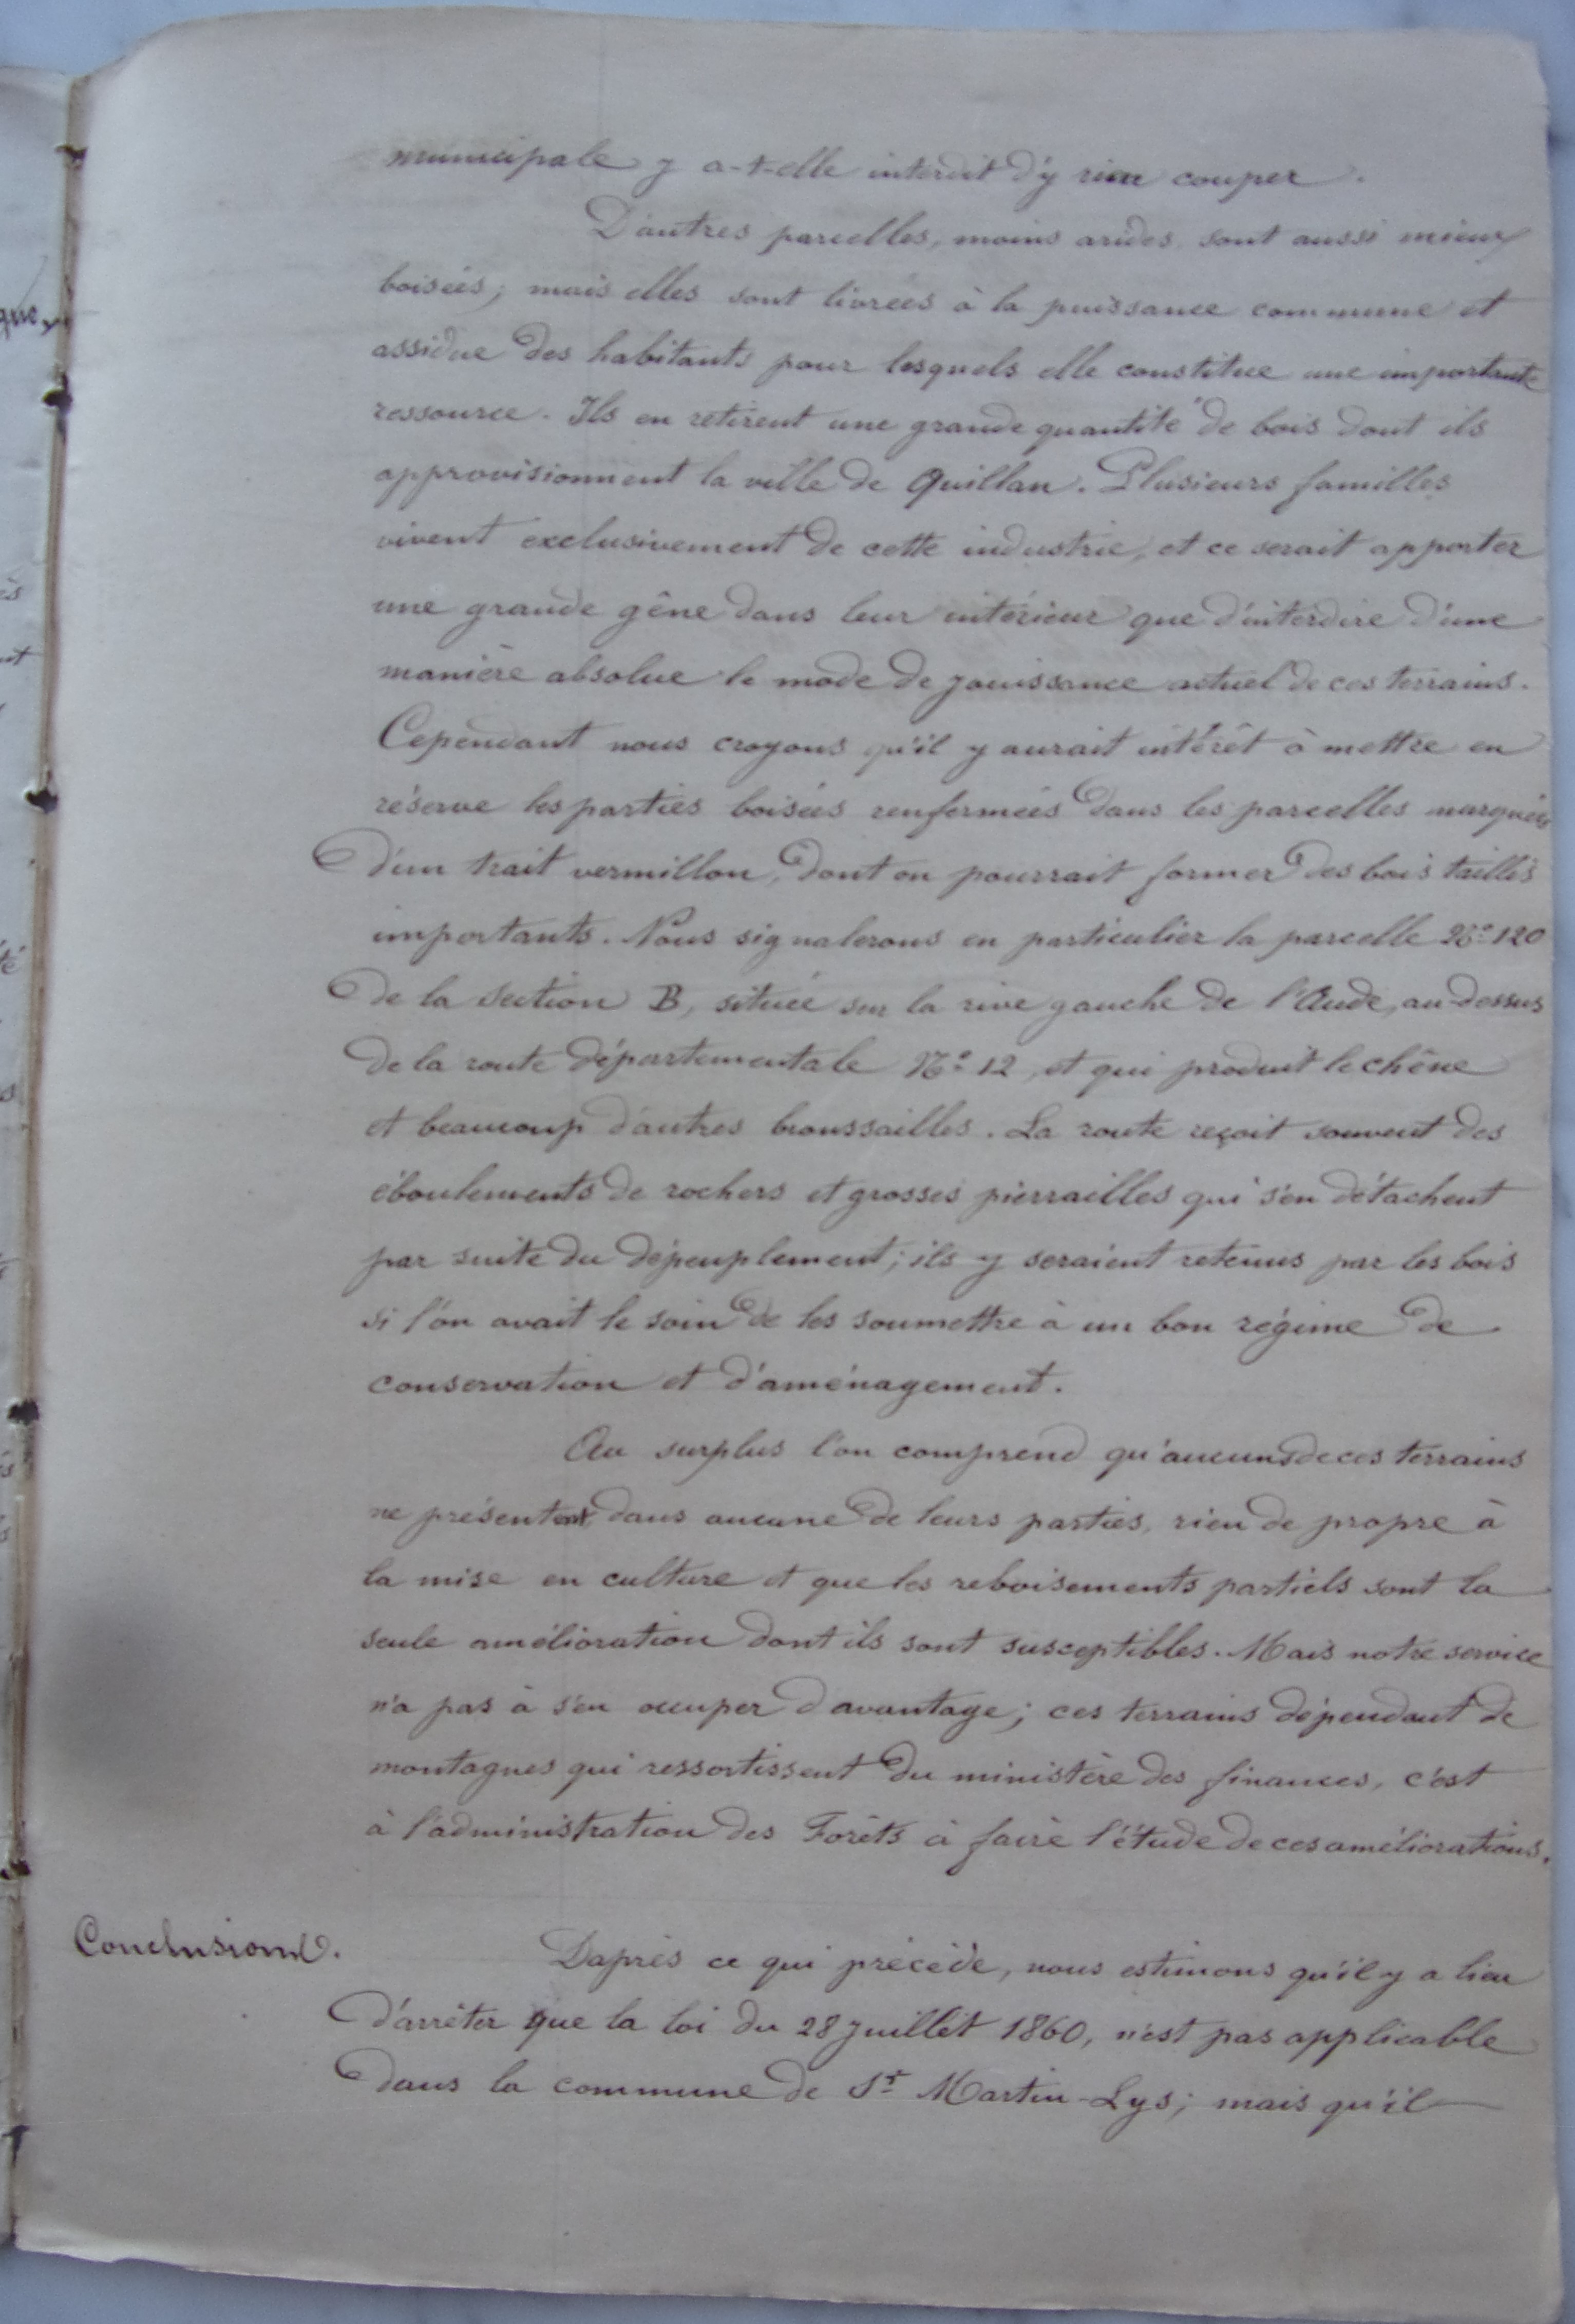 municipale y a-t-elle interdit d'y rien couper.
D'autres parcelles, moins arides, sont aussi mieux
boisées; mais elles sont livrées à la puissance commune et
assidue des habitants pour lesquels elle constitue une importante
ressource. Ils en retirent une grande quantité de bois dont ils
approvisionnent la ville de Quillan. Plusieurs familles
vivent exclusivement de cette industrie, et ce serait apporter
une grande gêne dans leur intérieur que d'interdire d'une
manière absolue le mode de jouissance actuel de ces terrains.
Cependant nous croyons qu'il y aurait intérêt à mettre en
réserve les parties boisées renfermées dans les parcelles marquées
d'un trait vermillon, dont on pourrait former des bois taillis
importants. Nous signalerons en particulier la parcelle N.° 120
de la section B, située sur la rive gauche de l'Aude, au-dessus
de la route départementale N.° 12, et qui produit le chêne
et beaucoup d'autres broussailles. La route reçoit souvent des
éboulements de rochers et grosses pierrailles qui s'en détachent
par suite du dépeuplement; ils y seraient retenus par les bois
si l'on avait le soin de les soumettre à un bon régime de
conservation et d'aménagement.
Au surplus l'on comprend qu'aucuns de ces terrains
ne présentent dans aucune de leurs parties, rien de propre à
la mise en culture et que les reboisements partiels sont la
seule amélioration dont ils sont susceptibles. Mais notre service
n'a pas à s'en occuper d'avantage; ces terrains dépendant de
montagnes qui ressortissent du ministère des finances, c'est
à l'administration des Forêts à faire l'étude de ces améliorations.
Conclusions.
D'après ce qui précède, nous estimons qu'il y a lieu
d'arrêter que la loi du 28 juillet 1860, n'est pas applicable
dans la commune de St Martin-Lys; mais qu'il